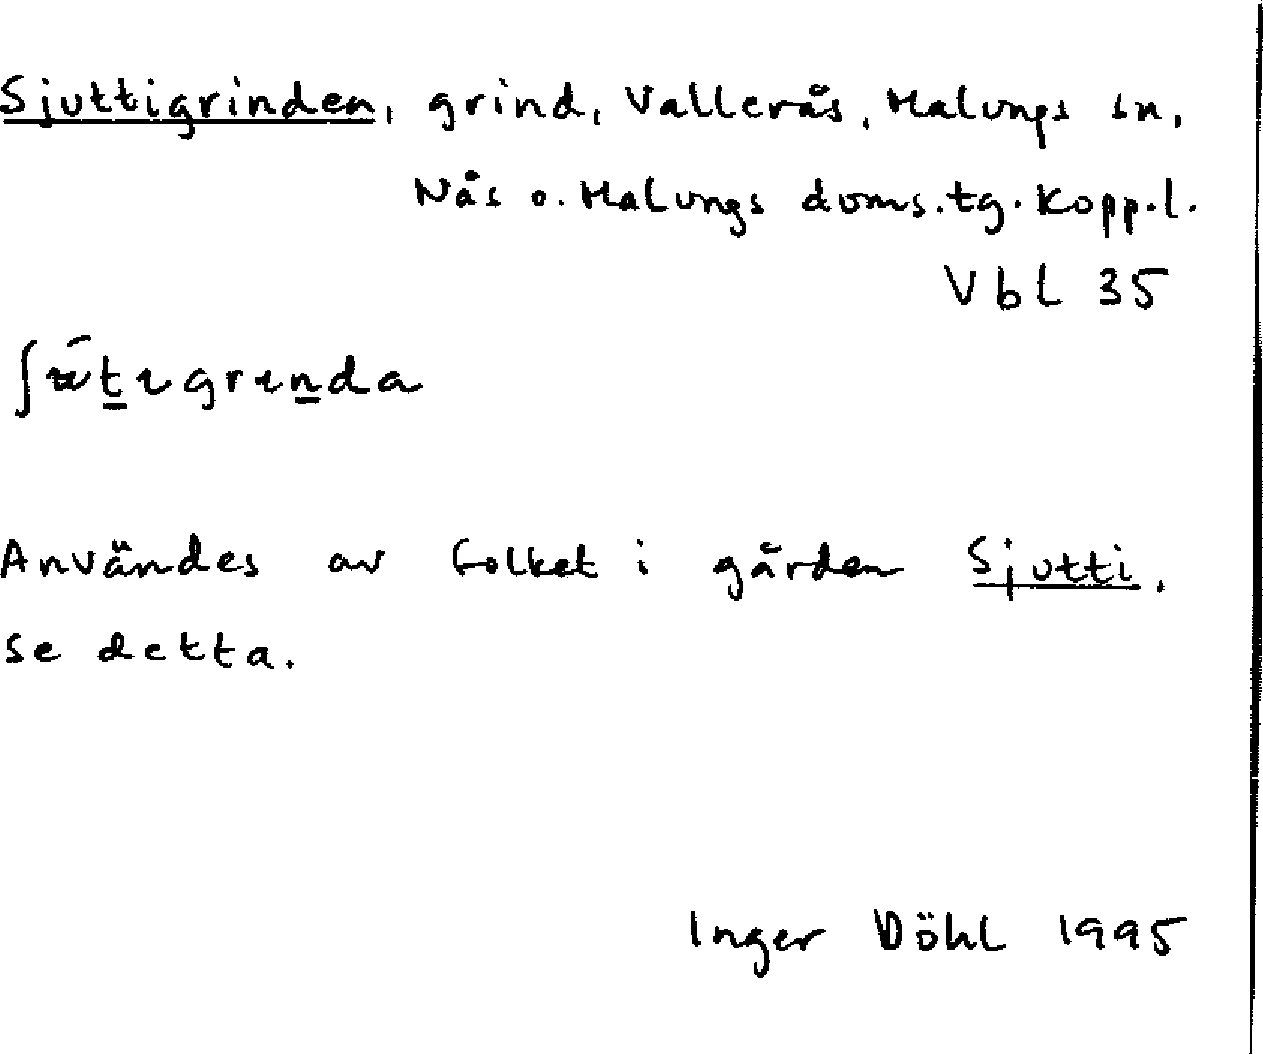 Sjuttigrinden, grind, Vallerås, Malungs sn,
Nås o. Malungs doms.tg. Kopp.l.
Vbl 35
Användes av folket i gården Sjutti,
se detta.
Inger Döhl 1995